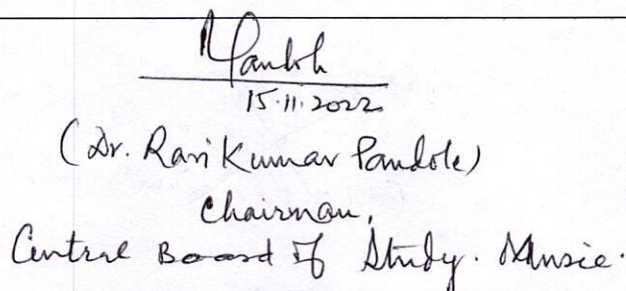 15.11.2022
(Dr. Ravi Kumar Pandole)
Chairman,
Central Board of Study. Music.